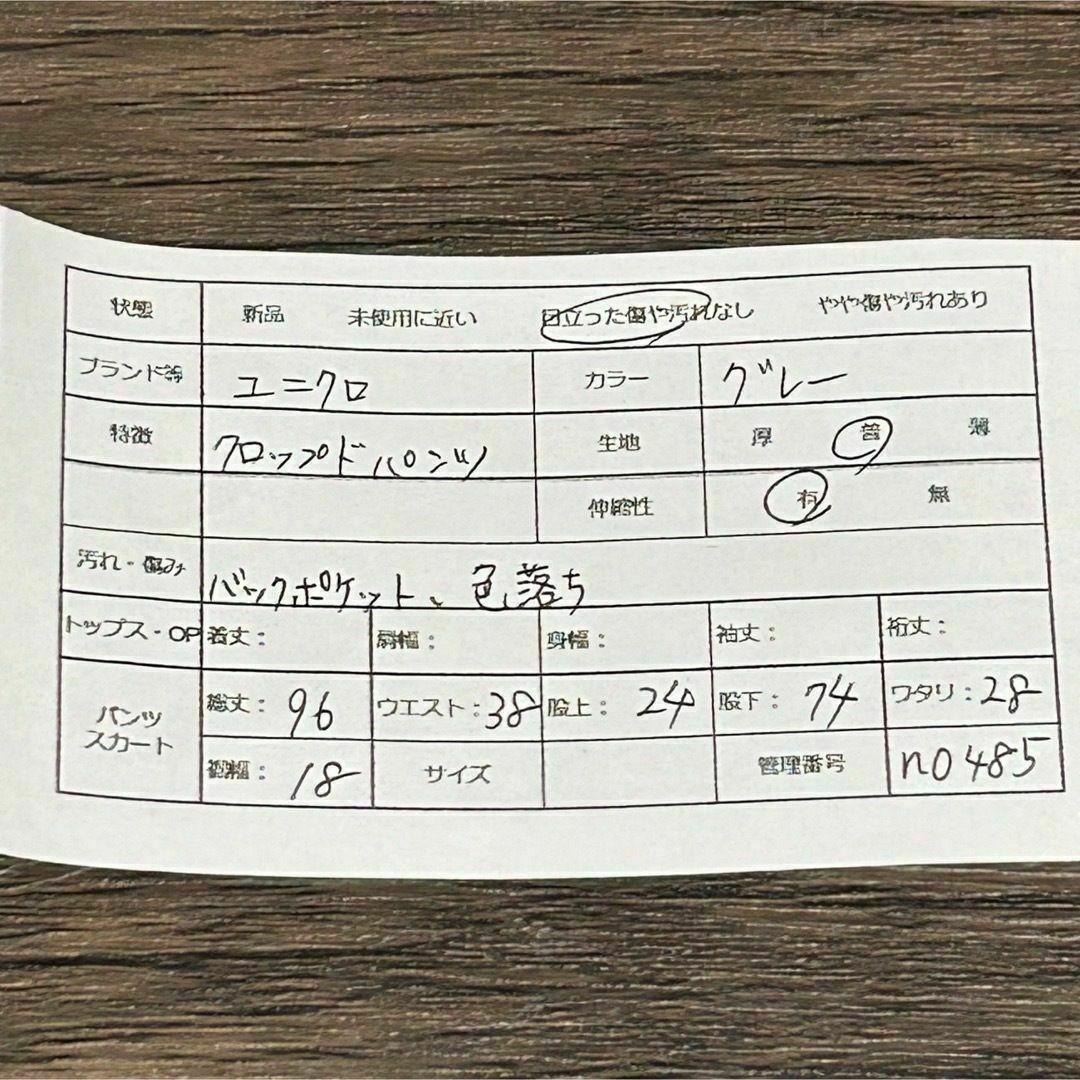 状態 新品 未使用に近い 目立った傷や汚れなし やや傷や汚れあり
ブランド等 ユニクロ カラー グレー
特徴 クロップドパンツ 生地 厚 普 薄
伸縮性 有 無
汚れ・傷み バックポケット、色落ち
トップス・OP 着丈: 肩幅: 身幅: 袖丈: 裄丈:
パンツ スカート 総丈: 96 ウエスト: 38 股上: 24 股下: 74 ワタリ: 28
裾幅: 18 サイズ 管理番号 no485